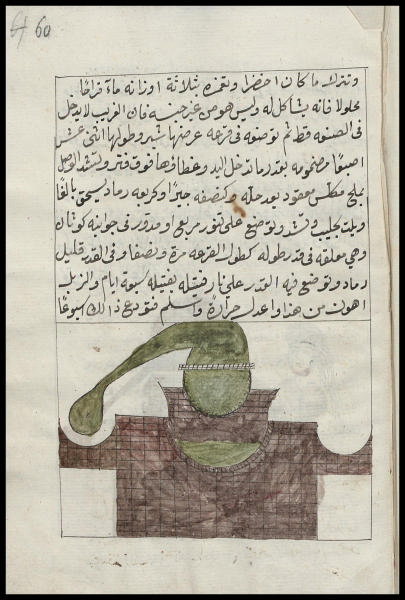 60
وتنزلا ما كان اخضرا وتغمره بثلاثة اوزانه ماءً قراحًا
محلولا فانه يتأكل له وليس هو من غير جنسه فان الغريب لا يدخل
فى الصنعه قط ثم توضعه فى قرعه عرضها شبر وطولها اثنى عشر
اصبعًا مضمومه بقدر ما تدخل اليد وغطاؤها فوق فتر وتشد الوصل
بملح مطلس معقود بعد حله وكنصفه جيرًا وكربعه رماد يسحق بالغًا
ويلت بحليب وتشد وتوضع على تنور مربع او مدور فى جوانبه كوتان
وهى معلقه فى قدر طوله كطول القرعه مرة ونصفا وفى القدر قليل
رماد وتوضع فيه القدر على نار فتيله بفتيله سبعة ايام والزبل
اهون من هذا واعدل حرارةً واسلم فتودع ذالك اسبوعًا